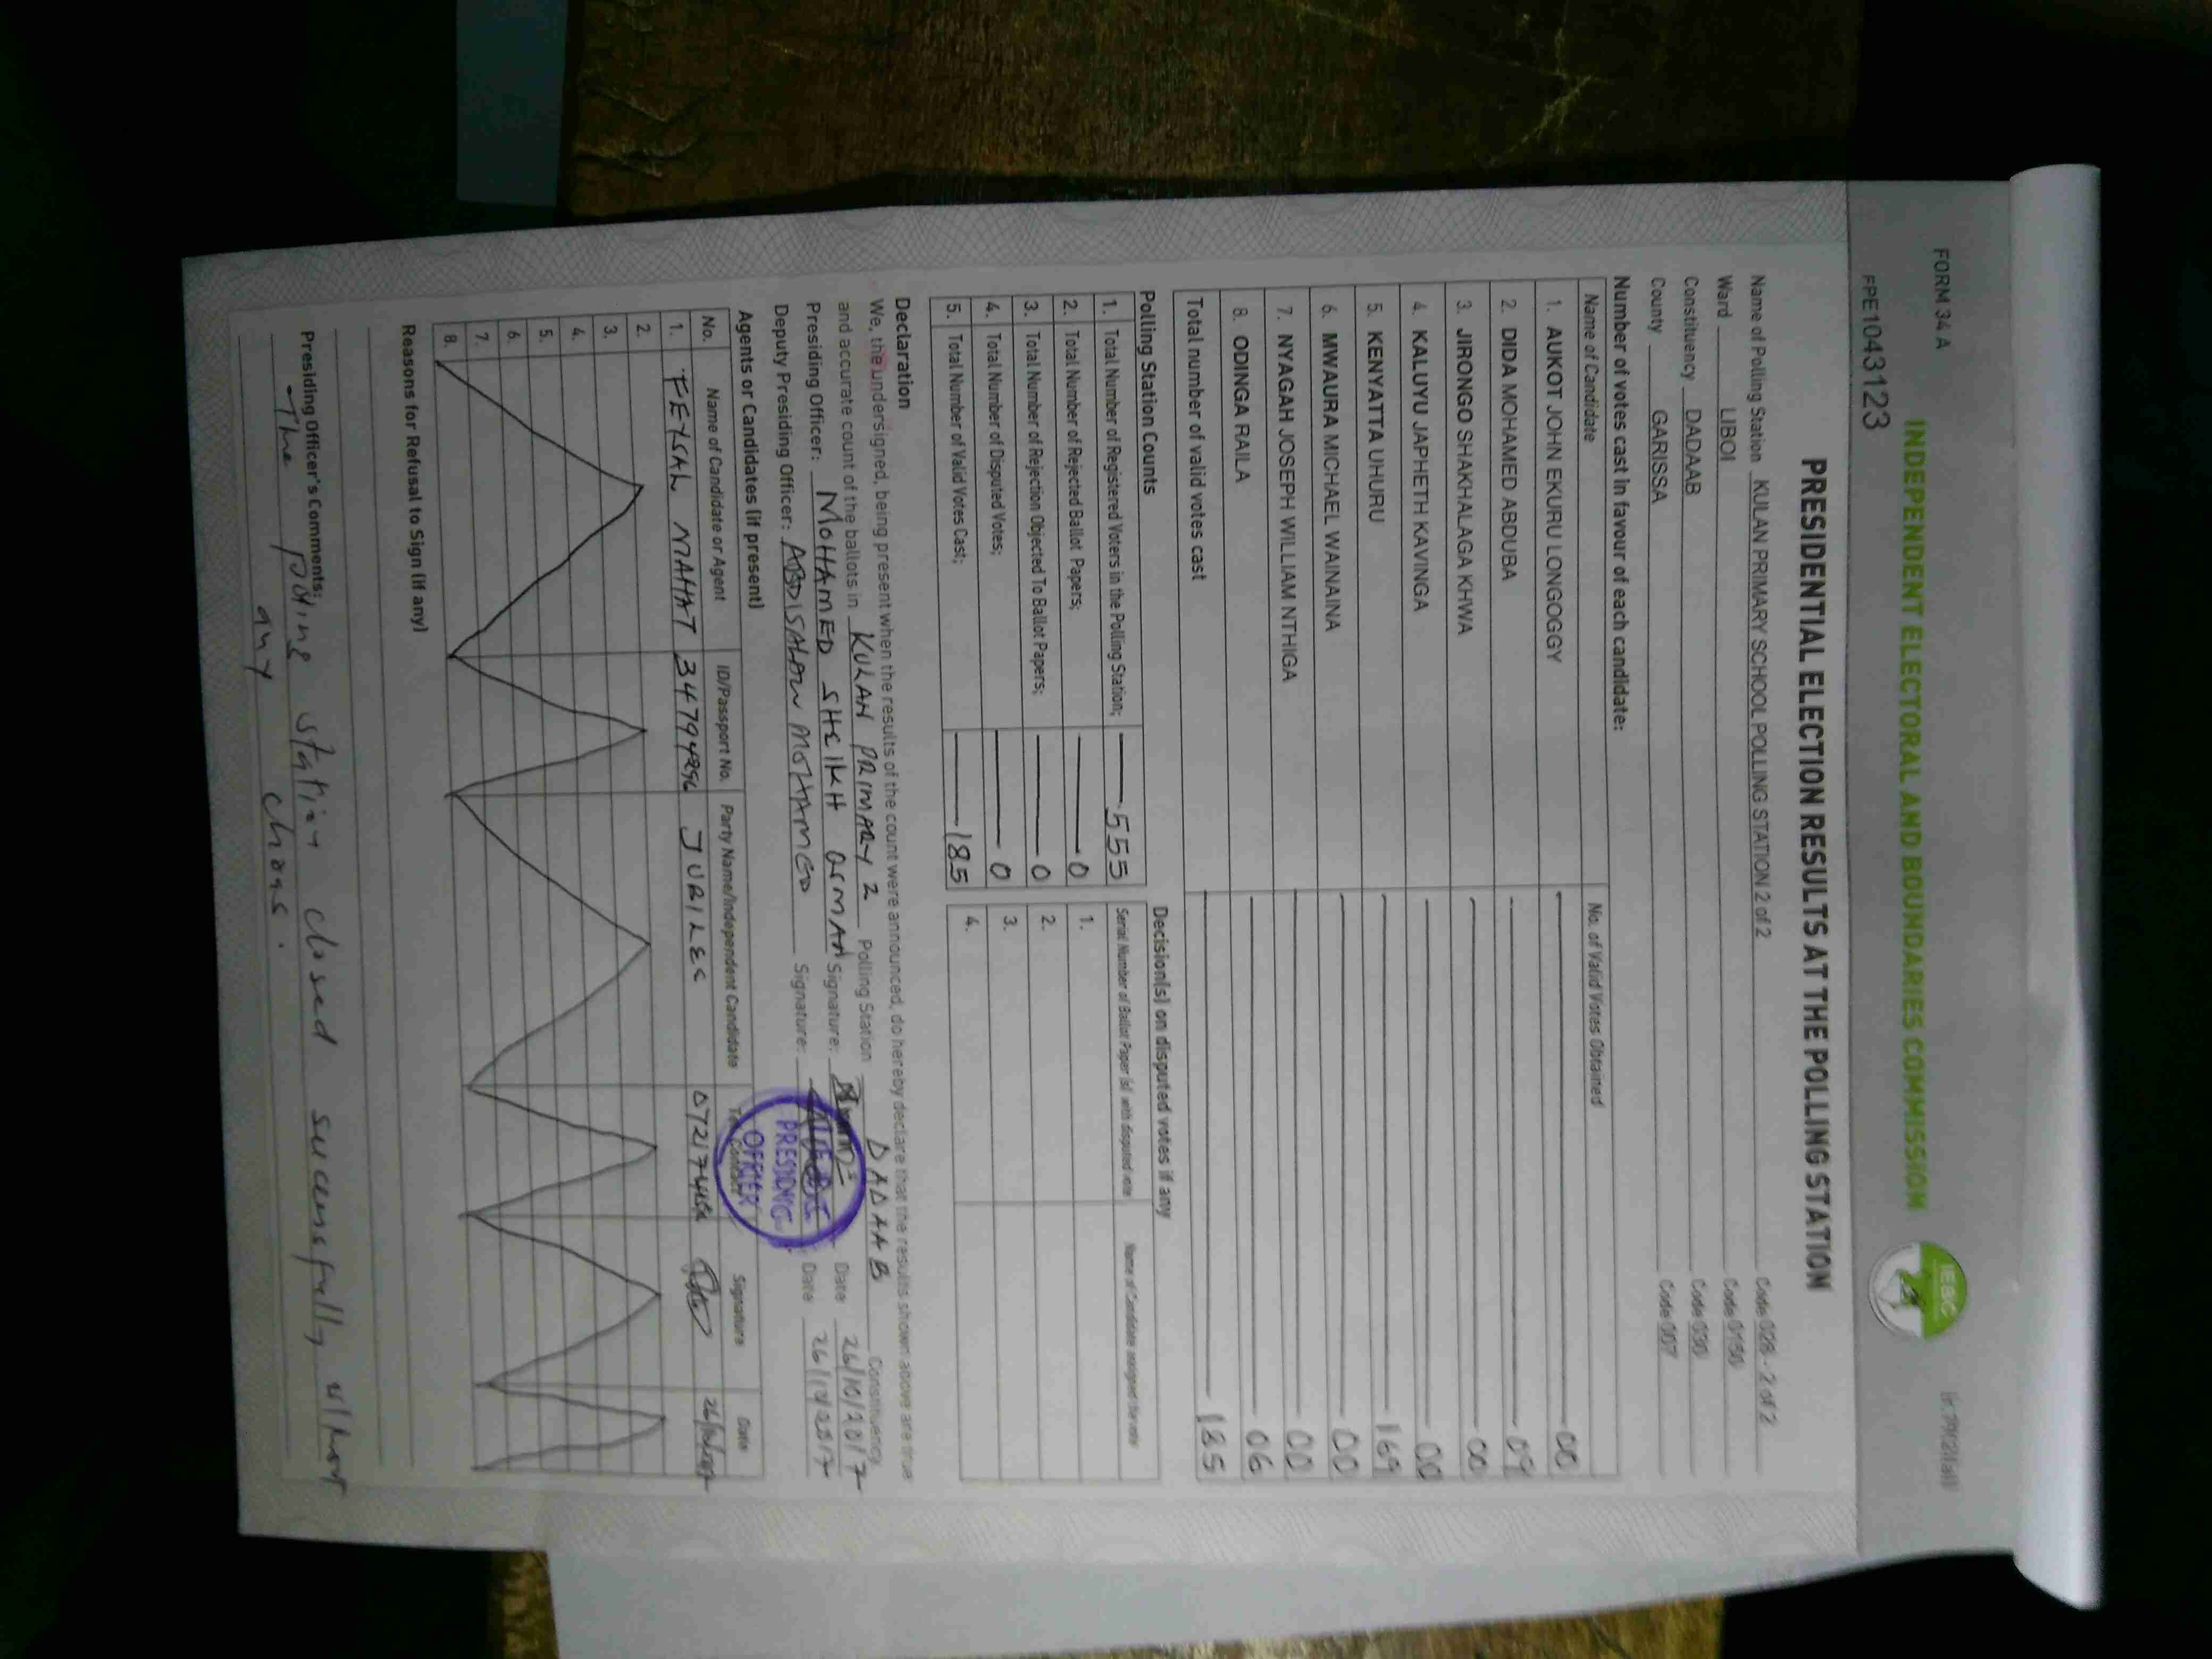 FORM 34 A
INDEPENDENT ELECTORAL AND BOUNDARIES COMMISSION
IEBC
FPE1043123
PRESIDENTIAL ELECTION RESULTS AT THE POLLING STATION
Name of Polling Station KULAN PRIMARY SCHOOL POLLING STATION 2 of 2 Code 028 - 2 of 2
Ward LIBOI Code 0150
Constituency DADAAB Code 030
County GARISSA Code 007
Number of votes cast in favour of each candidate:
Name of Candidate No. of Valid Votes Obtained
1. AUKOT JOHN EKURU LONGOGGY 00
2. DIDA MOHAMED ABDUBA 09
3. JIRONGO SHAKHALAGA KHWA 00
4. KALUYU JAPHETH KAVINGA 00
5. KENYATTA UHURU 169
6. MWAURA MICHAEL WAINAINA 00
7. NYAGAH JOSEPH WILLIAM NTHIGA 00
8. ODINGA RAILA 06
Total number of valid votes cast 185
Polling Station Counts
1. Total Number of Registered Voters in the Polling Station; 555
2. Total Number of Rejected Ballot Papers; 0
3. Total Number of Rejection Objected To Ballot Papers; 0
4. Total Number of Disputed Votes; 0
5. Total Number of Valid Votes Cast; 185
Decision(s) on disputed votes if any
Serial Number of Ballot Paper (s) with disputed vote Name of Candidate assigned the vote
1.
2.
3.
4.
Declaration
We, the undersigned, being present when the results of the count were announced, do hereby declare that the results shown above are true
and accurate count of the ballots in KULAN PRIMARY 2 Polling Station DADAAB Constituency
Presiding Officer: MOHAMED SHEIKH OSMAN Signature: Date 26/10/2017
Deputy Presiding Officer: ABDISALAN MOHAMED Signature: Date 26/10/2017
PRESIDING
OFFICER
Agents or Candidates (if present)
No. Name of Candidate or Agent ID/Passport No. Party Name/Independent Candidate Tel. Contact Signature Date
1. FEISAL MAHAT JUBILEE
2.
3.
4.
5.
6.
7.
8.
Reasons for Refusal to Sign (if any)
Presiding Officer's Comments:
The poling station closed successfully without
any chaos.